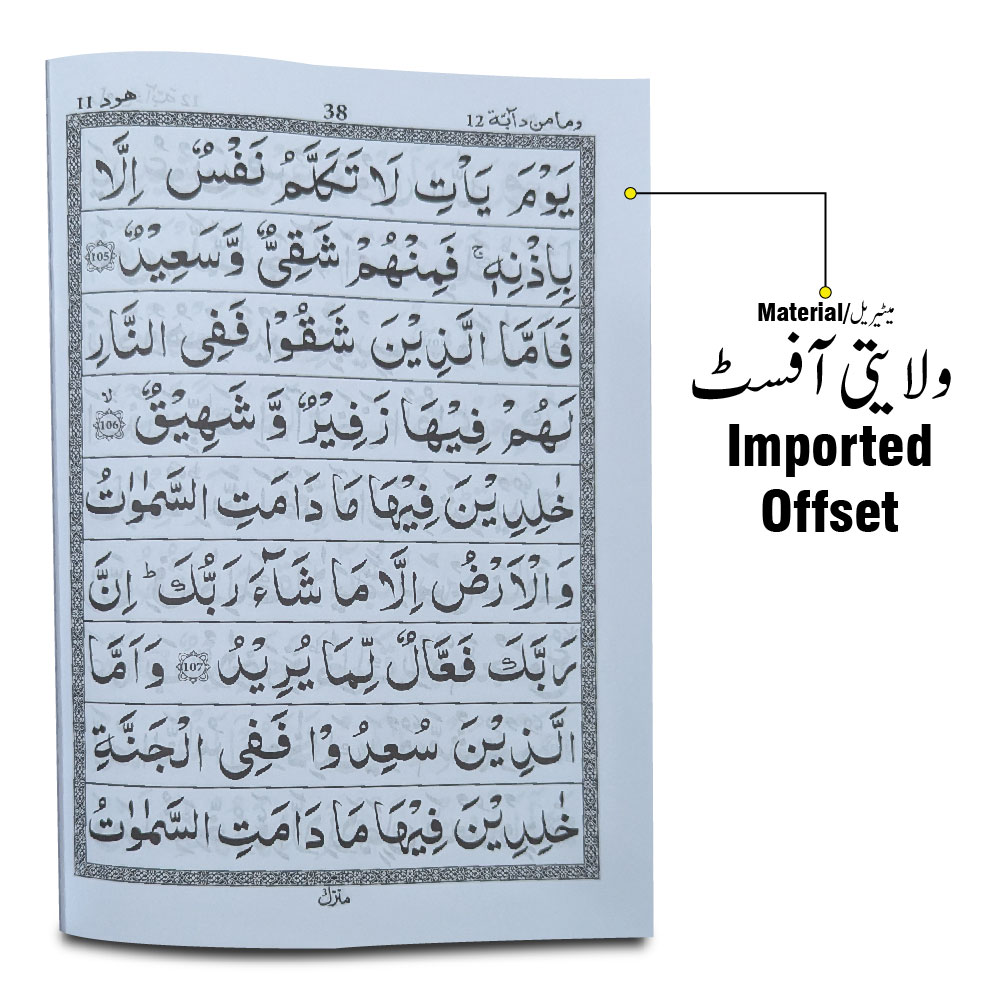 وما من دآبّة 12
38
هود 11
يَوْمَ يَاْتِ لَا تَكَلَّمُ نَفْسٌ اِلَّا
بِاِذْنِهٖ ۚ فَمِنْهُمْ شَقِيٌّ وَّسَعِيْدٌ 105
فَاَمَّا الَّذِيْنَ شَقُوْا فَفِى النَّارِ
لَهُمْ فِيْهَا زَفِيْرٌ وَّ شَهِيْقٌ ۙ 106
خٰلِدِيْنَ فِيْهَا مَا دَامَتِ السَّمٰوٰتُ
وَالْاَرْضُ اِلَّا مَا شَآءَ رَبُّكَ ؕ اِنَّ
رَبَّكَ فَعَّالٌ لِّمَا يُرِيْدُ 107 وَاَمَّا
الَّذِيْنَ سُعِدُوْا فَفِى الْجَنَّةِ
خٰلِدِيْنَ فِيْهَا مَا دَامَتِ السَّمٰوٰتُ
منزل ٣
Material/میٹیریل
ولایتی آفسٹ
Imported
Offset